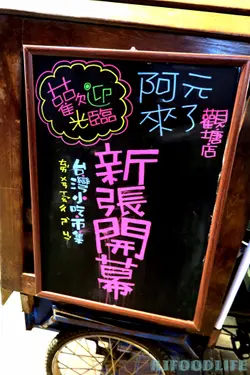 歡迎
光臨
阿元
來了
觀塘店
新張開幕
台灣小吃市集
KJFOODLIFE